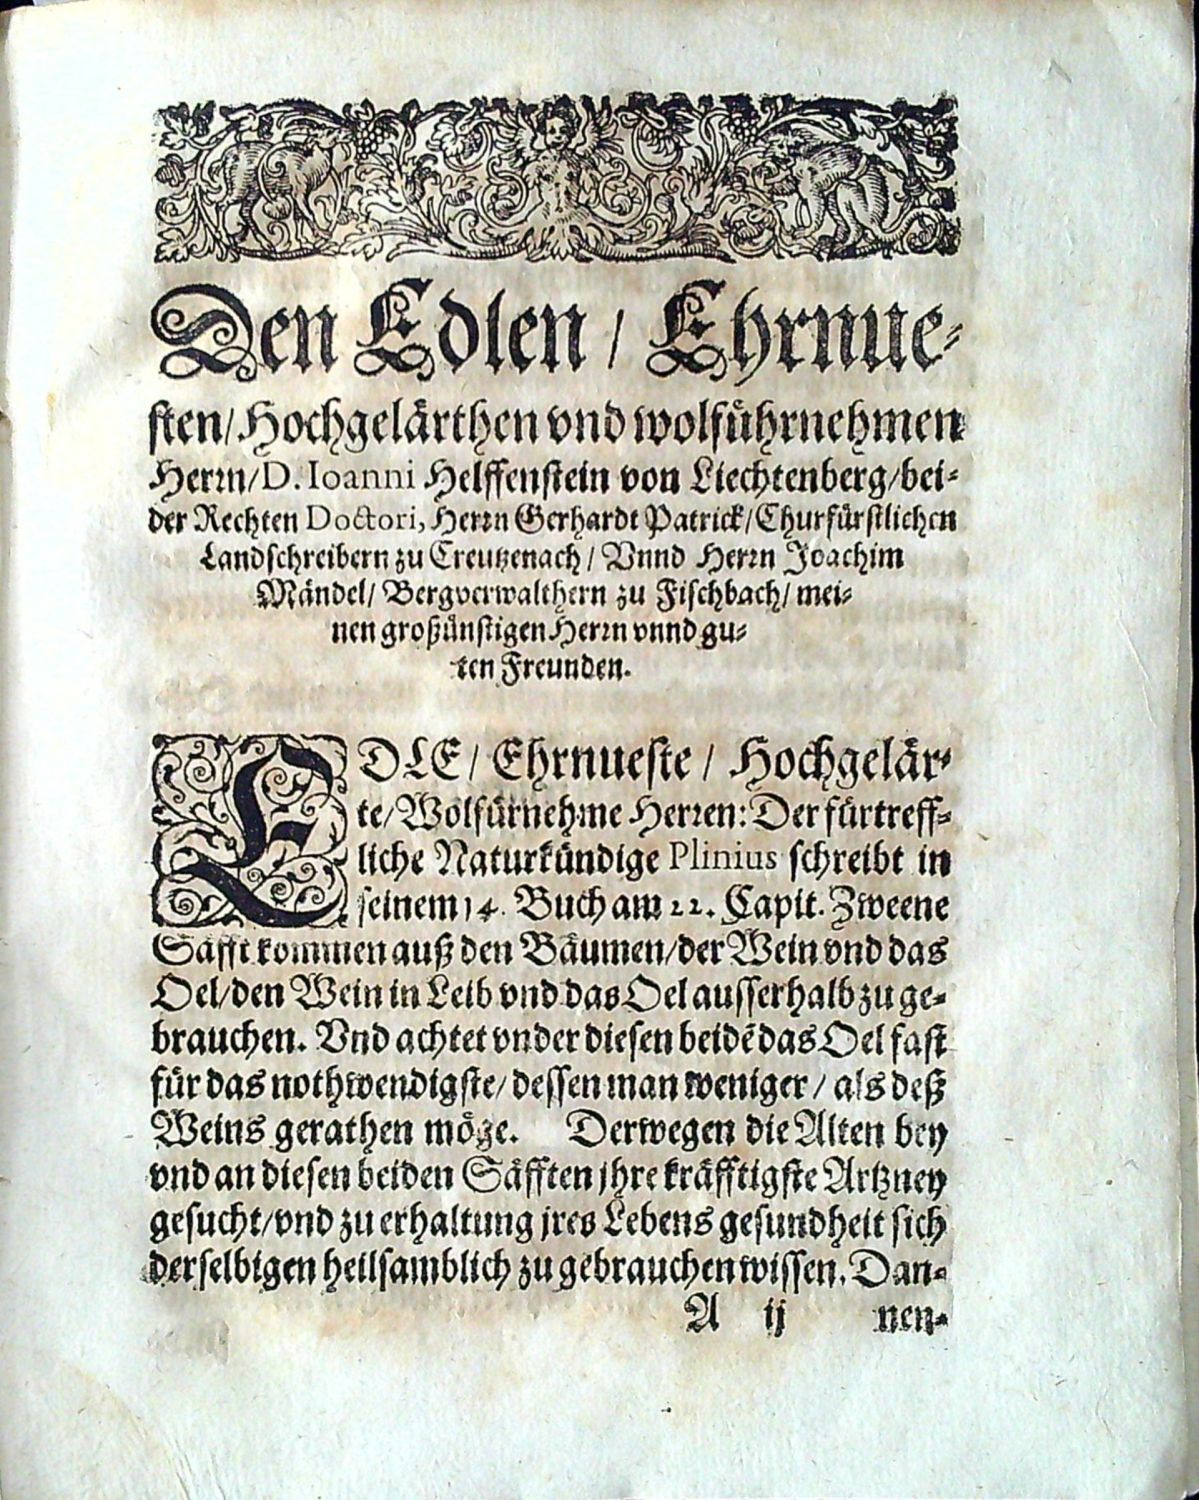 Den Edlen / Ehrnue-
sten / Hochgelärthen vnd wolführnehmen
Herrn / D. Ioanni Helffenstein von Liechtenberg / bei-
der Rechten Doctori, Herrn Gerhardt Patrick / Churfürstlichen
Landschreibern zu Creutzenach / Vnnd Herrn Joachim
Mändel / Bergverwalthern zu Fischbach / mei-
nen großünstigen Herrn vnnd gu-
ten Freunden.
EDLE / Ehrnueste / Hochgelär-
te / Wolfürnehme Herren: Der fürtreff-
liche Naturkündige Plinius schreibt in
seinem 14. Buch am 22. Capit. Zweene
Säfft kommen auß den Bäumen / der Wein vnd das
Oel / den Wein in Leib vnd das Oel ausserhalb zu ge-
brauchen. Vnd achtet vnder diesen beidē das Oel fast
für das nothwendigste / dessen man weniger / als deß
Weins gerathen möge. Derwegen die Alten bey
vnd an diesen beiden Säfften jhre kräfftigste Artzney
gesucht / vnd zu erhaltung jres Lebens gesundheit sich
derselbigen heilsamblich zu gebrauchen wissen. Dan-
A ij nen-